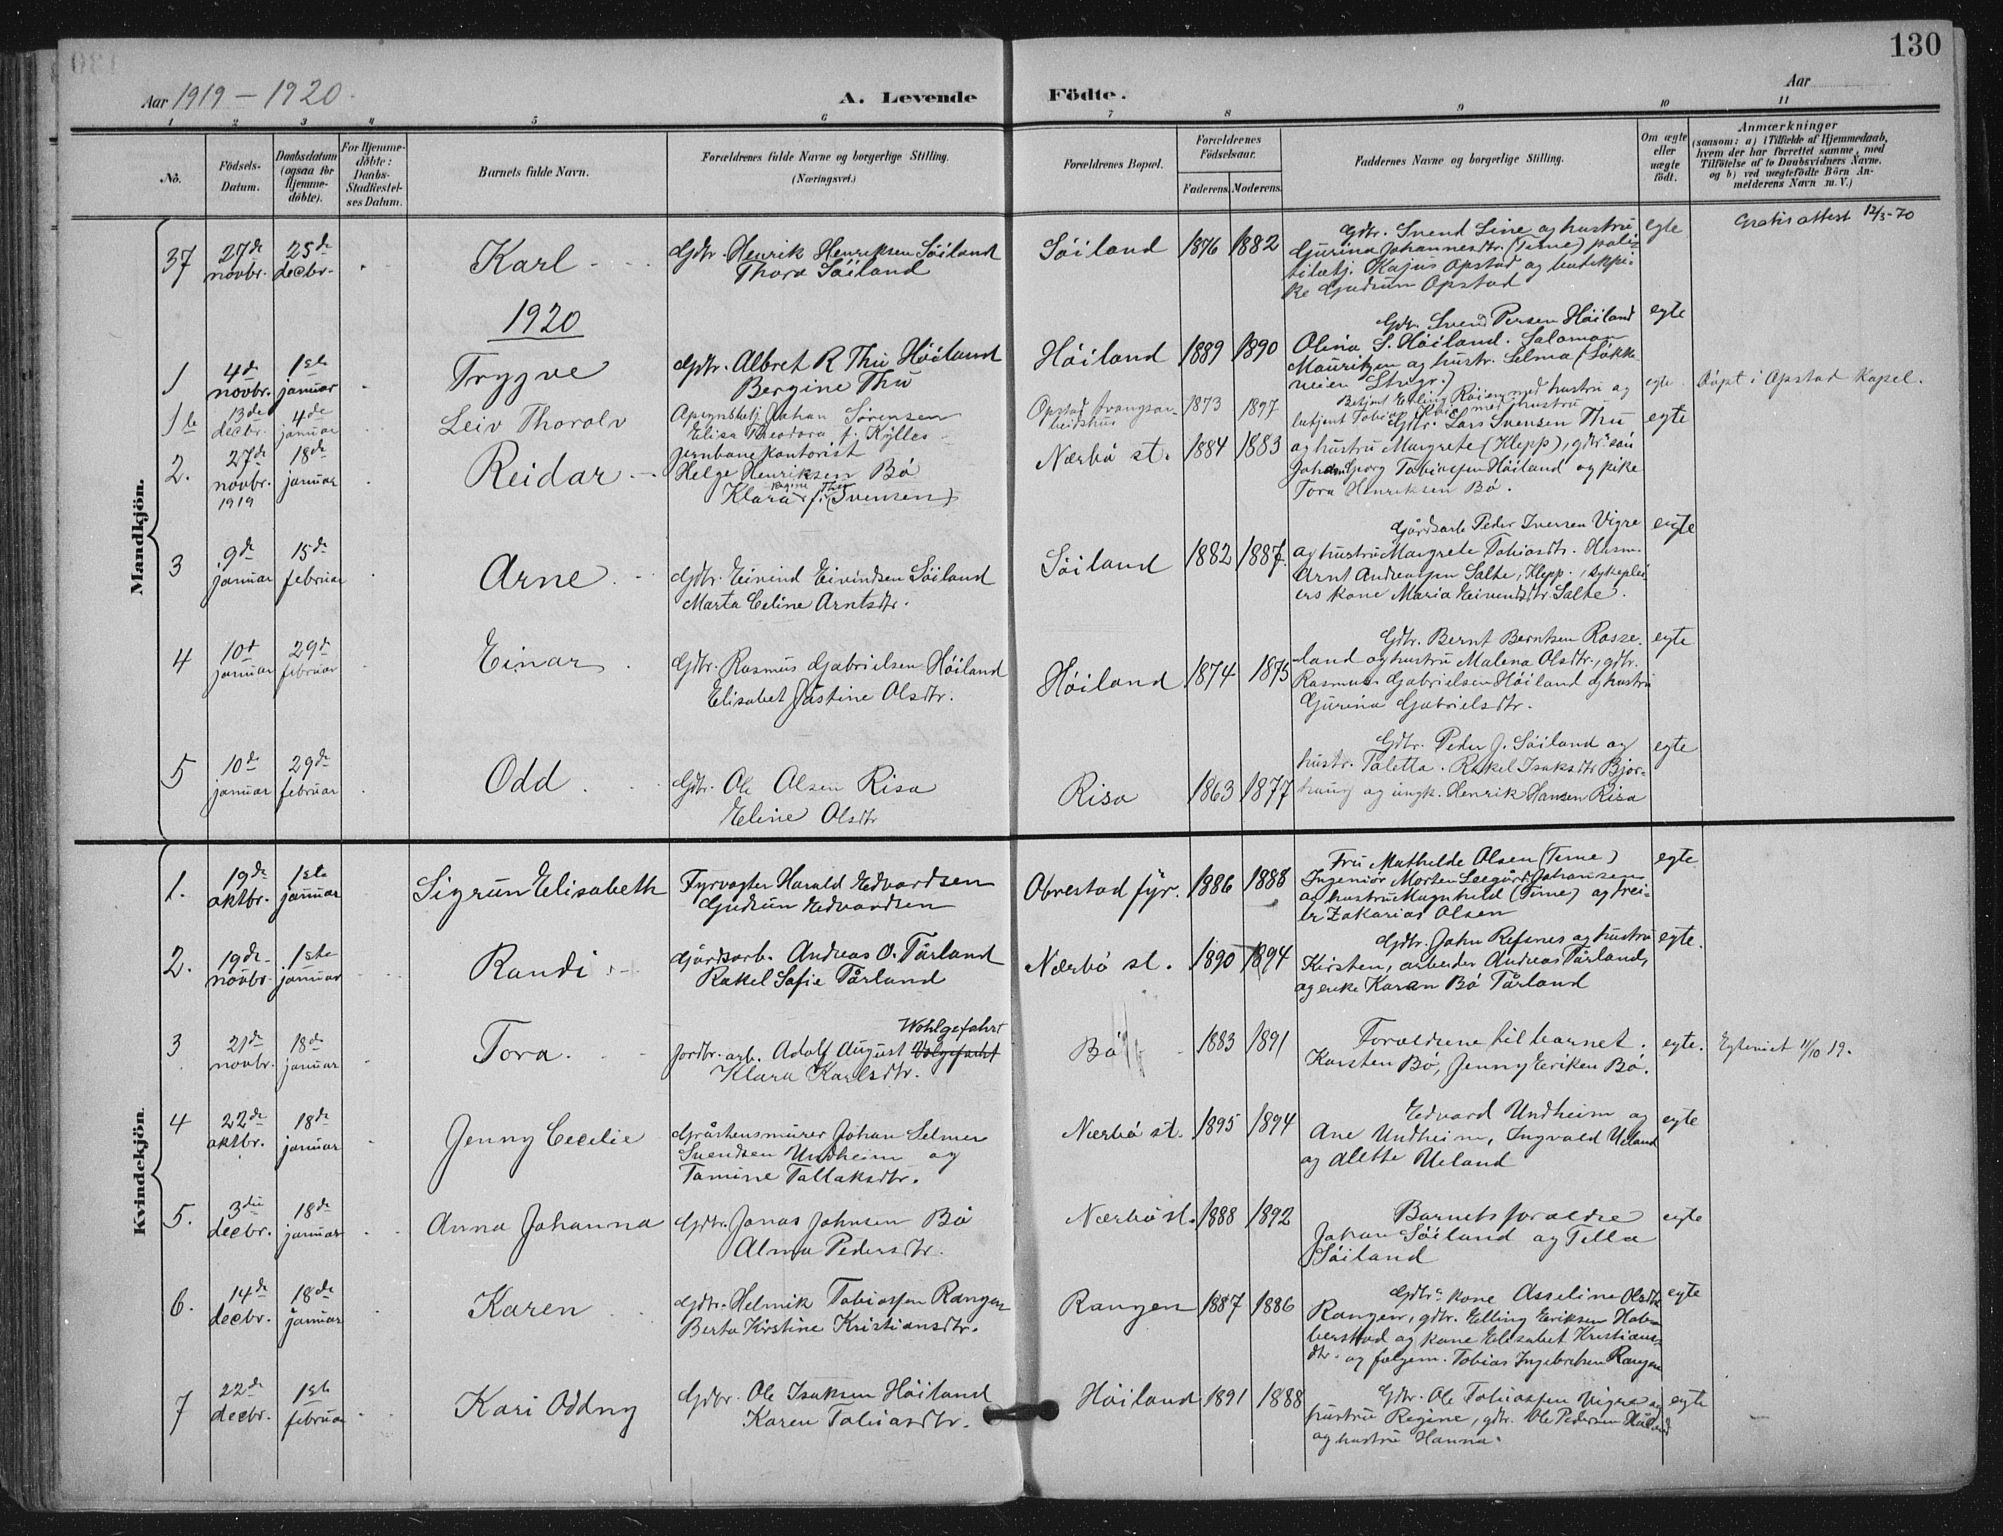 130
Aar 1919 – 1920.
A. Levende Födte.
Aar
1 2 3 4 5 6 7 8 9 10 11
No.
Födsels-Datum.
Daabsdatum (ogsaa for Hjemme-döbte).
For Hjemme-döbte: Daabs-Stadfæstelses Datum.
Barnets fulde Navn.
Forældrenes fulde Navne og borgerlige Stilling. (Næringsvei.)
Forældrenes Bopæl.
Forældrenes Födselsaar.
Faderens. Moderens.
Faddernes Navne og borgerlige Stilling.
Om ægte eller uægte födt.
Anmærkninger (saasom: a) i Tilfælde af Hjemmedaab, hvem der har forrettet samme, med Tilföielse af to Daabsvidners Navne, og b) ved uægtefödte Börn Anmelderens Navn m. V.)
Mandkjön.
37 27de novbr. 25de decbr. Karl
Gdbr. Henrik Henriksen Söiland
Thora Söiland
Söiland 1876 1882
Gdbr. Svend Line og hustru
Gurina Johannesdtr. (Time) poli-
tibetj. Kajus Opstad og butikpi-
ke Gudrun Opstad
egte
Gratis attest 12/3-70
1920
1 4de novbr. 1ste januar Trygve
Gdbr. Albret R Thu Höiland
Bergine Thu
Höiland 1889 1890
Gdbr. Svend Persen Höiland
Olina S. Höiland. Salomon
Mauritzen og hustr. Selma (Lökke-
veien Stvgr.)
egte
1b 13de decbr. 4de januar Leiv Thoralv
Opsynsbetj Johan Sörensen
Elisa Theodora f. Kylles
Opstad tvangsar-
beidshus
1873 1897
Betjent Erling Roien med hustru og
betjent Tobias med hustru
egte
Döpt i Opstad Kapel.
2. 27de novbr. 1919 18de januar Reidar
Jernbanekontorist
Helge Henriksen Bö
Klara Regine f. Thu (Svensen)
Nærbö st. 1884 1883
Gdbr. Lars Svensen Thu
og hustru Margrete (Klepp), gdbr.sön
Johan Georg Tobiassen Höiland og pike
Tora Henriksen Bö.
egte
3 9de januar 15de februar Arne
Gdbr. Eivind Eivindsen Söiland
Marta Celine Arntsdtr.
Söiland 1882 1887
Gårdsarb Peder Iversen Vigre
og hustru Margrete Tobiasdtr. Husm.
Arnt Andreassen Salte, Klepp., sykeplei-
ers kone Maria Eivendsdtr Salte.
egte
4 10d januar 29d februar Einar
Gdbr. Rasmus Gabrielsen Höiland
Elisabet Jästine Olsdtr.
Höiland 1874 1875
Gdbr. Bernt Berntsen Rosse-
land og hustru Malena Olsdtr., gdbr.
Rasmus Gabrielsen Höiland og hustru
Gurina Gabrielsdtr.
egte
5 10de januar 29de februar Odd
Gdbr. Ole Olsen Risa
Eline Olsdtr
Risa 1863 1877
Gdbr. Peder J. Söiland og
hustr. Taletta. Rakel Isaksdtr Bjor-
haug og ungk. Henrik Hansen Risa
egte
Kvindekjön.
1. 19de oktbr. 1ste januar Sigrun Elisabeth
Fyrvogter Harald Edvardsen
Gudrun Edvardsen
Obrestad fyr. 1886 1888
Fru Mathilde Olsen (Time)
Ingeniör Morten Seegård Johansen
og hustru Magnhild (Time) og frei-
er Zakarias Olsen
egte
2. 19de novbr. 1ste januar Randi
Gårdsarb. Andreas O. Tårland
Rakel Sofie Tårland
Nærbö st. 1890 1894
Gdbr. John Refsnes og hustru
Kirsten, arbeider Andreas Tårland,
og enke Karen Bö Tårland
egte.
3 21de novbr. 18de januar Tora.
Wohlgefahrt
Jordbr. arb. Adolf August Volgefaht
Klara Karlsdtr.
Bö 1883 1891
Forældrene til barnet.
Karsten Bö, Jenny Eriken Bö.
egte. Egteviet 11/10 19.
4 22de oktbr. 18de januar Jenny Cecilie
Gråstensmurer Johan Selmer
Svendsen Undheim og
Tomine Tallaksdtr.
Nærbö st. 1895 1894
Edvard Undheim og
Ane Undheim, Ingvald Ueland
og Alette Ueland
egte
5. 3die decbr. 18de januar Anna Johanna
Gdbr. Jonas Johnsen Bö
Alma Pedersdtr.
Nærbö st. 1888 1892
Barnets foraldre
Johan Söiland og Tella
Söiland
egte
6. 14de decbr. 18de januar Karen
Gdbr. Helmik Tobiassen Rangen
Berta Kirstine Kristiansdtr.
Rangen 1887 1886
Gdbr.s kone Asseline Olsdtr
Rangen, gdbr. Elling Eriksen Hob-
berstad og kone Elisabet Kristians-
dtr. og følgem. Tobias Ingebretsen Rangen
egte
7 22de decbr. 1ste februar Kari Oddny
Gdbr. Ole Isaksen Höiland
Karen Tobiasdtr.
Höiland 1891 1888
Gdbr. Ole Tobiassen Vigre og
hustru Regine, gdbr. Ole Pedersen Höiland
og hustru Hanna.
egte